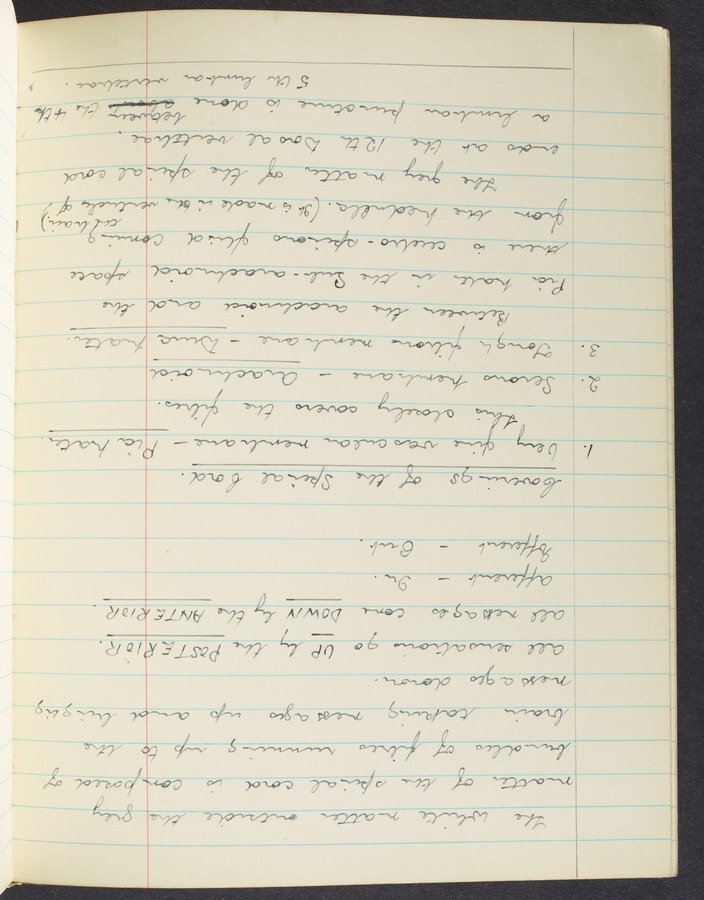 The white matter outside the grey
matter of the spinal cord is composed of
bundles of fibres running up to the
brain taking messages up and bringing
messages down.
All sensations go UP by the POSTERIOR.
All messages come DOWN by the ANTERIOR.
Afferent - In.
Efferent - Out.
Coverings of the Spinal Cord.
1. Very fine vascular membrane - Pia Mater.
This closely covers the fibres.
2. Serous membrane - Arachnoid
3. Tough fibrous membrane - Dura Mater.
Between the arachnoid and the
Pia Mater in the Sub-arachnoid space
there is cerebro-spinous fluid coming
from the Medulla. (It is made in the ventricles of
the brain).
The grey matter of the spinal cord
ends at the 12th Dorsal vertebrae.
A lumbar puncture is done above between the 4th -
5th lumbar vertebrae.